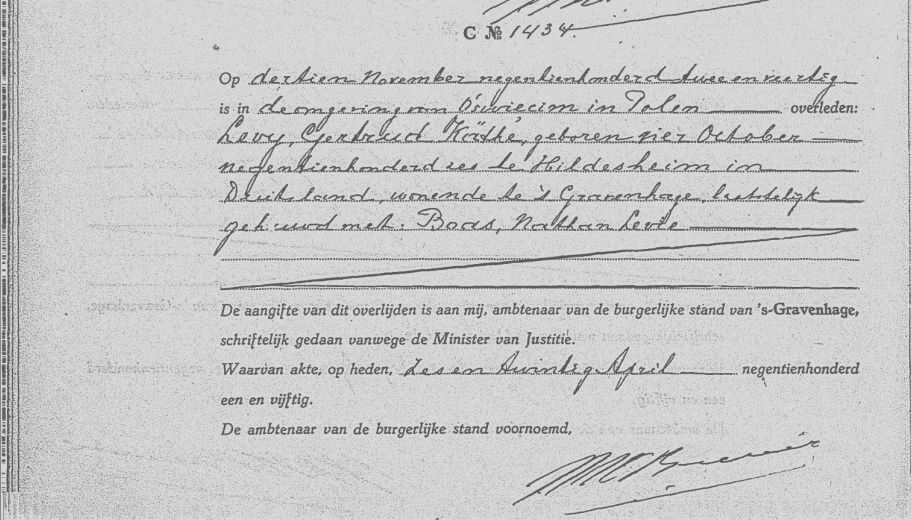 C № 1434.
Op dertien November negentienhonderd twee en veertig
is in de omgeving van Oświecim in Polen overleden:
Levy, Gertrud Käthe, geboren vier October
negentienhonderd zes te Hildesheim in
Duitsland, wonende te 's Gravenhage, laatstelijk
gehuwd met: Boas, Nathan Levie
De aangifte van dit overlijden is aan mij, ambtenaar van de burgerlijke stand van 's-Gravenhage,
schriftelijk gedaan vanwege de Minister van Justitie.
Waarvan akte, op heden, zes en twintig April negentienhonderd
een en vijftig.
De ambtenaar van de burgerlijke stand voornoemd,